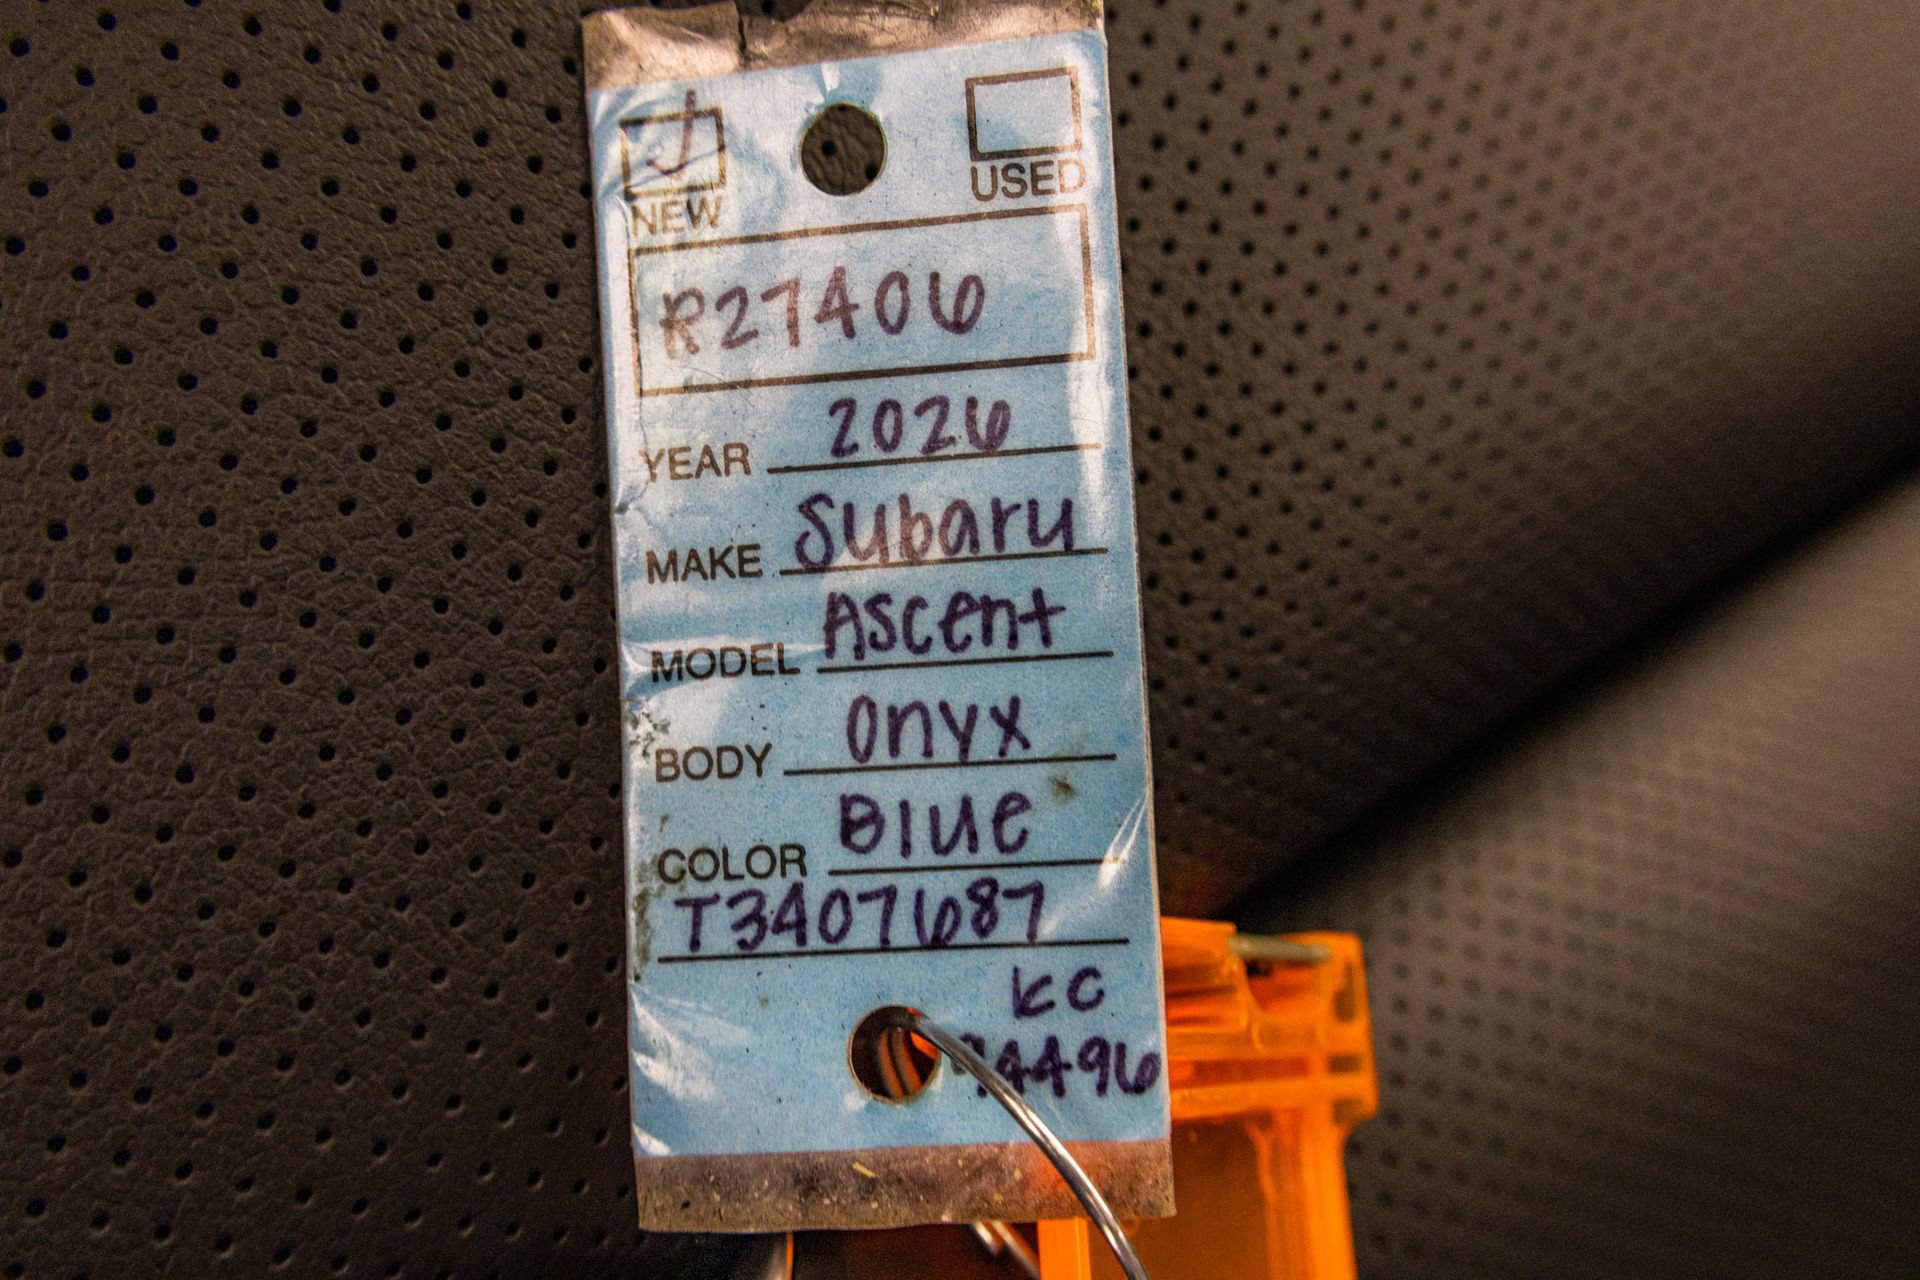 NEW USED
R27406
YEAR 2026
MAKE Subaru
MODEL Ascent
BODY Onyx
COLOR Blue
T3407687
KC
94496